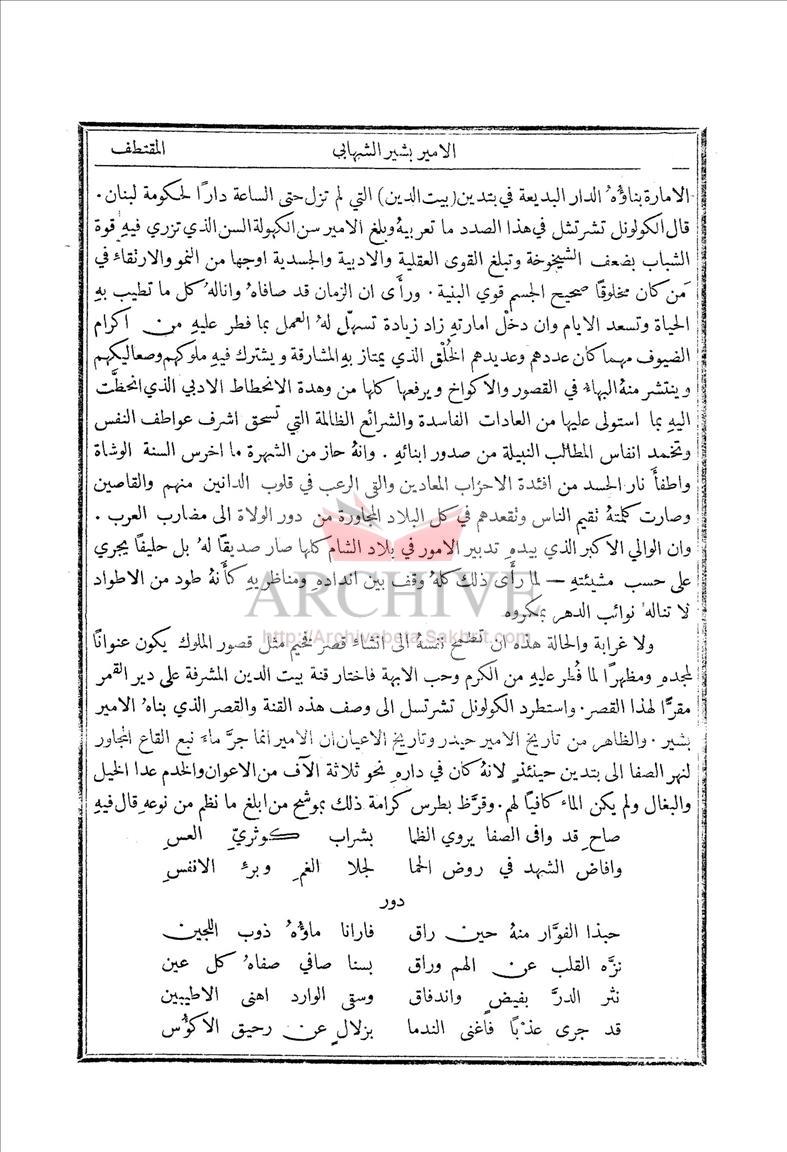 الامير بشير الشهابي المقتطف
الامارة بناؤهُ الدار البديعة في بتدين (بيت الدين) التي لم تزل حتى الساعة دارًا لحكومة لبنان.
قال الكولونل تشرتشل في هذا الصدد ما تعريبهُ وبلغ الامير سن الكهولة السن الذي تزري فيهِ قوة
الشباب بضعف الشيخوخة وتبلغ القوى العقلية والادبية والجسدية اوجها من النمو والارتقاء في
مَن كان مخلوقًا صحيح الجسم قوي البنية. ورأَى ان الزمان قد صافاهُ وانالهُ كل ما تطيب بهِ
الحياة وتسعد الايام وان دخْل امارتهِ زاد زيادة تسهّل لهُ العمل بما فطر عليهِ من اكرام
الضيوف مهما كان عددهم وعديدهم الخُلْق الذي يمتاز بهِ المشارقة ويشترك فيهِ ملوكهم وصعاليكهم
وينتشر منهُ البهاء في القصور والاكواخ ويرفعها كلها من وهدة الانحطاط الادبي الذي انحطَّت
اليهِ بما استولى عليها من العادات الفاسدة والشرائع الظالمة التي تسحق اشرف عواطف النفس
وتخمد انفاس المطالب النبيلة من صدور ابنائهِ. وانهُ حاز من الشهرة ما اخرس السنة الوشاة
واطفأَ نار الحسد من افئدة الاحزاب المعادين والقى الرعب في قلوب الدانين منهم والقاصين
وصارت كلمتهُ تقيم الناس وتقعدهم في كل البلاد المجاورة من دور الولاة الى مضارب العرب.
وان الوالي الاكبر الذي بيدهِ تدبير الامور في بلاد الشام كلها صار صديقًا لهُ بل حليفًا يجري
على حسب مشيئتهِ — لما رأَى ذلك كلهُ وقف بين اندادهِ ومناظريهِ كأَنهُ طود من الاطواد
لا تنالهُ نوائب الدهر بمكروه
ARCHIVE
http://Archivebeta.Sakhrit.com
ولا غرابة والحالة هذه ان تطمح نفسهُ الى انشاء قصر فخيم مثل قصور الملوك يكون عنوانًا
لمجدهِ ومظهرًا لما فُطر عليهِ من الكرم وحب الابهة فاختار قنة بيت الدين المشرفة على دير القمر
مقرًّا لهذا القصر. واستطرد الكولونل تشرتسل الى وصف هذه القنة والقصر الذي بناهُ الامير
بشير. والظاهر من تاريخ الامير حيدر وتاريخ الاعيان ان الامير انما جرَّ ماءَ نبع القاع المجاور
لنهر الصفا الى بتدين حينئذٍ لانهُ كان في دارهِ نحو ثلاثة الآف من الاعوان والخدم عدا الخيل
والبغال ولم يكن الماء كافيًا لهم. وقرَّظ بطرس كرامة ذلك بموشح من ابلغ ما نظم من نوعهِ قال فيهِ
صاحِ قد وافى الصفا يروي الظما بشراب كوثريّ العسِ
وافاض الشهد في روض الحما لجلا الغمِ وبرءِ الانفسِ
دور
حبذا الفوَّار منهُ حين راق فارانا ماؤهُ ذوب اللجين
نزَّه القلب عن الهم وراق بسنا صافي صفاهُ كل عين
نثر الدرَّ بفيضٍ واندفاق وسقى الوارد اهنى الاطيبين
قد جرى عذبًا فاغنى الندما بزلالٍ عن رحيق الاكؤس